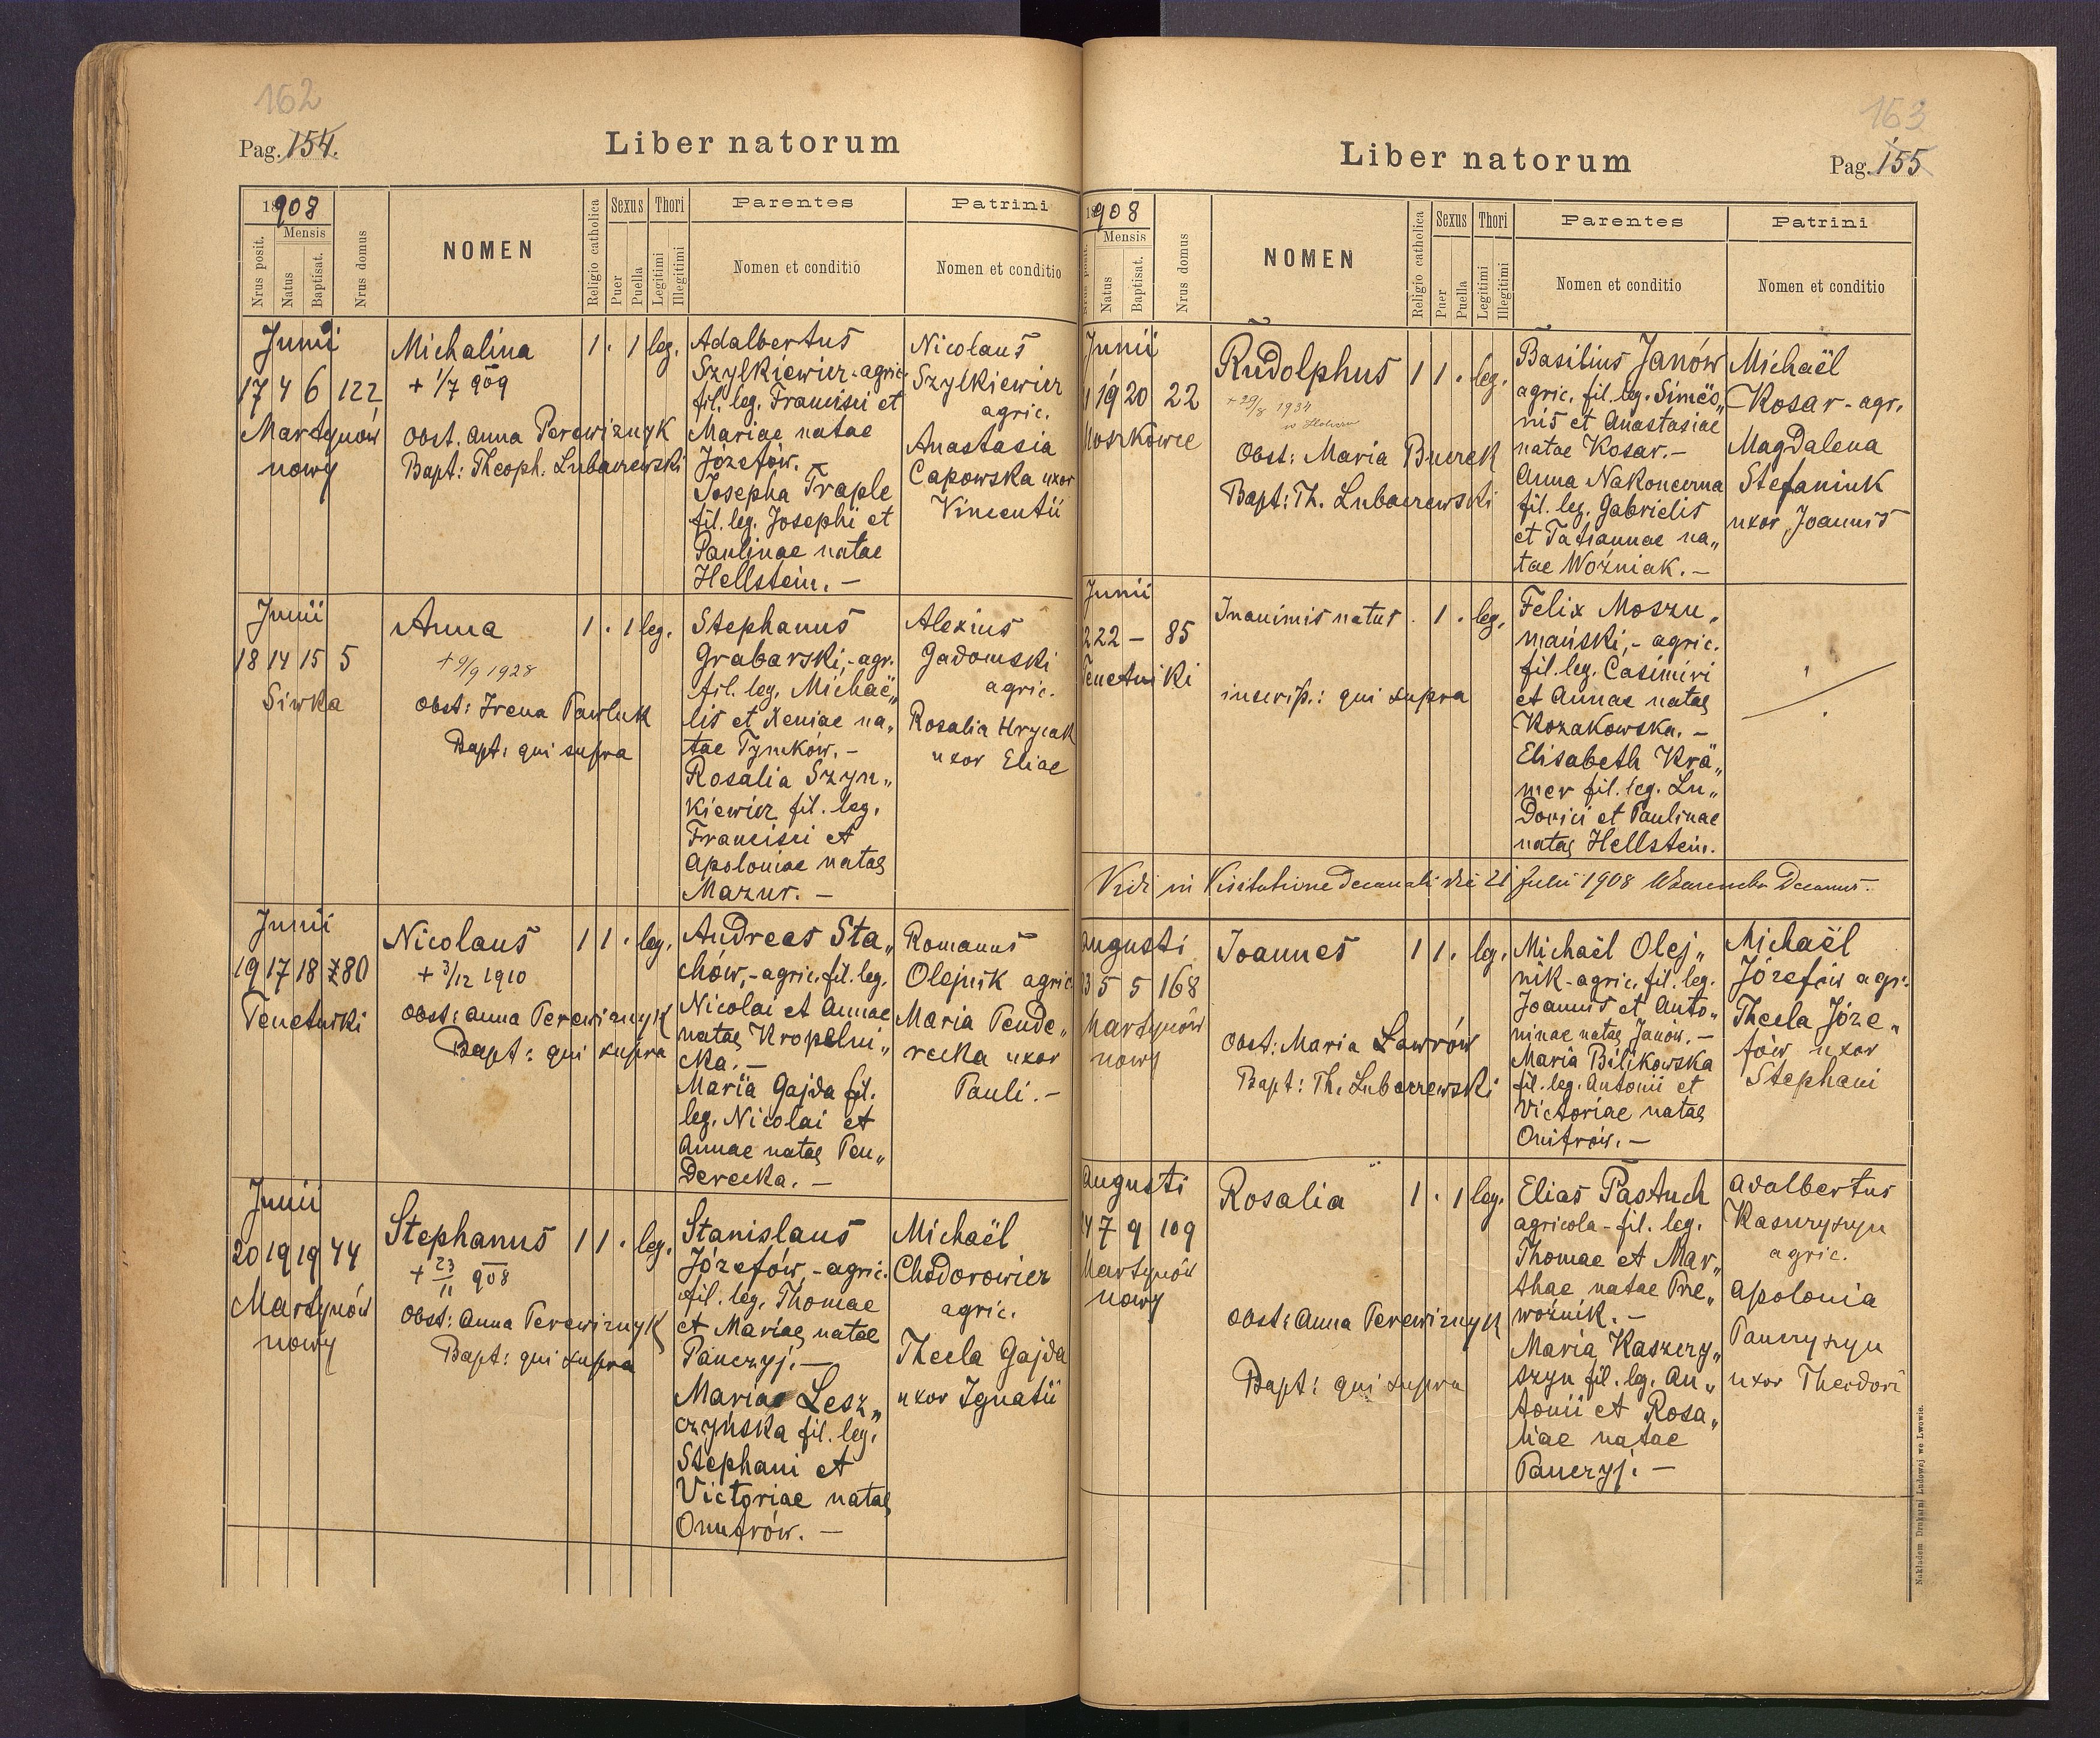 162
Pag. 154.
Liber natorum
1908
Mensis
Nrus posit.
Natus
Baptisat.
Nrus domus
NOMEN
Religio catholica
Sexus
Puer
Puella
Thori
Legitimi
Illegitimi
Parentes
Nomen et conditio
Patrini
Nomen et conditio
Junii
17 4 6 122
Martynów
nowy
Michalina
+ 1/7 909
Obst. Anna Perewiznyk
Bapt: Theoph. Lubaczewski
1 . 1 leg.
Adalbertus
Szylkiewicz - agric.
fil. leg. Francisci et
Mariae natae
Józefów.
Josepha Traple
fil. leg. Josephi et
Paulinae natae
Hellstein. —
Nicolaus
Szylkiewicz
agric.
Anastasia
Capowska uxor
Vincentii
Junii
18 14 15 5
Siwka
Anna
+ 9/9 1928
Obst: Irena Pawluk
Bapt: qui supra
1 . 1 leg.
Stephanus
Grabarski, - agr.
fil. leg. Michaë„
lis et Xeniae na„
tae Tymków. —
Rosalia Szyn„
kiewicz fil. leg.
Francisci et
Apoloniae natae
Mazur. —
Alexius
Gadomski
agric.
Rosalia Hrycak
uxor Eliae
Junii
19 17 18 80
Tenetniki
Nicolaus
+ 3/12 1910
Obst: Anna Perewiznyk
Bapt: qui supra
1 1 . leg.
Andreas Sta„
chów, - agric. fil. leg.
Nicolai et Annae
natae Kropelni„
cka. —
Maria Gajda fil.
leg. Nicolai et
Annae natae Pen„
derecka. —
Romanus
Olejnik agric
Maria Pende„
recka uxor
Pauli. —
Junii
20 19 19 44
Martynów
nowy
Stephanus
+ 23/11 908
Obst: Anna Perewiznyk
Bapt: qui supra
1 1 . leg.
Stanislaus
Józefów, - agric.
fil. leg. Thomae
et Mariae natae
Panczyj. —
Maria Lesz„
czyńska fil. leg.
Stephani et
Victoriae natae
Onufrów. —
Michaël
Chodorowicz
agric.
Thecla Gajda
uxor Ignatii
163
Liber natorum
Pag. 155
1908
Mensis
Natus
Baptisat.
Nrus domus
NOMEN
Religio catholica
Sexus
Puer
Puella
Thori
Legitimi
Illegitimi
Parentes
Nomen et conditio
Patrini
Nomen et conditio
Junii
1 19 20 22
Moszkowce
Rudolphus
+ 29/8 1934
Obst: Maria Burek
Bapt: Th. Lubaczewski
1 1 . leg.
Basilius Janów
agric. fil. leg. Simeo„
nis et Anastasiae
natae Kosar. —
Anna Nakoneczna
fil. leg. Gabrielis
et Tatiannae na„
tae Woźniak. —
Michaël
Kosar - agr.
Magdalena
Stefaniuk
uxor Joannis
Junii
2 22 — 85
Tenetniki
Inanimis natus
inscrip.: qui supra
. 1 . leg.
Felix Moszu„
mański, - agric.
fil. leg. Casimiri
et Annae natae
Kozakowska. —
Elisabeth Krä„
mer fil. leg. Lu„
dovici et Paulinae
natae Hellstein.
Vidi in Visitatione decanali die 21 Julii 1908 Decanus
Augusti
3 5 5 168
Martynów
nowy
Joannes
Obst: Maria Ławrów
Bapt: Th. Lubaczewski
1 1 . leg.
Michaël Olej„
nik - agric. fil. leg.
Joannis et Anto„
ninae natae Janów. —
Maria Bilikowska
fil. leg. Antonii et
Victoriae natae
Onifrów. —
Michaël
Józefów agr.
Thecla Józe„
fów uxor
Stephani
Augusti
4 7 9 109
Martynów
nowy
Rosalia
Obst: Anna Perewiznyk
Bapt: qui supra
1 . 1 leg.
Elias Pastuch
agricola - fil. leg.
Thomae et Mar„
thae natae Pre„
woźnik. —
Maria Kaszczy„
szyn fil. leg. An„
tonii et Rosa„
liae natae
Panczyj. —
Adalbertus
Kasczyszyn
agric.
Apolonia
Panczyszyn
uxor Theodori
Nakładem Drukarni Ludowej we Lwowie.